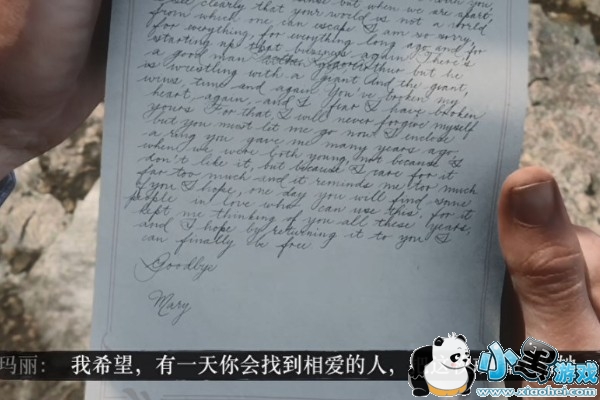 clearly that your world is not a world
from which one can escape. I am so sorry
for everything, for everything long ago and for
starting up that business again. There's
a good man within you Arthur but he
is wrestling with a giant. And the giant,
wins time and again. You've broken my
heart again, and I fear I have broken
yours. For that, I will never forgive myself
but you must let me go now. I enclose
a ring you gave me many years ago
when we were both young, not because I
don't like it, but because I care for it
far too much and it reminds me too much
of you. I hope, one day you will find some
people in love who can use this, for it
kept me thinking of you all these years,
and I hope by returning it to you I
can finally be free.
Goodbye
Mary
玛丽： 我希望，有一天你会找到相爱的人，
小黑游戏
www.xiaohei.com